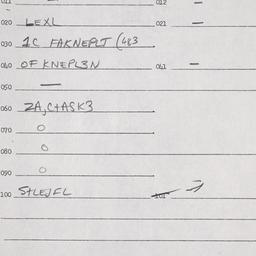 011 — 012 —
020 LEXL 021 —
030 1C FAKNEPLT (483
040 OF KNEPL3N 041 —
050 —
060 ZA,C+ASK3
070 O
080 O
090 O
100 StLEJFL